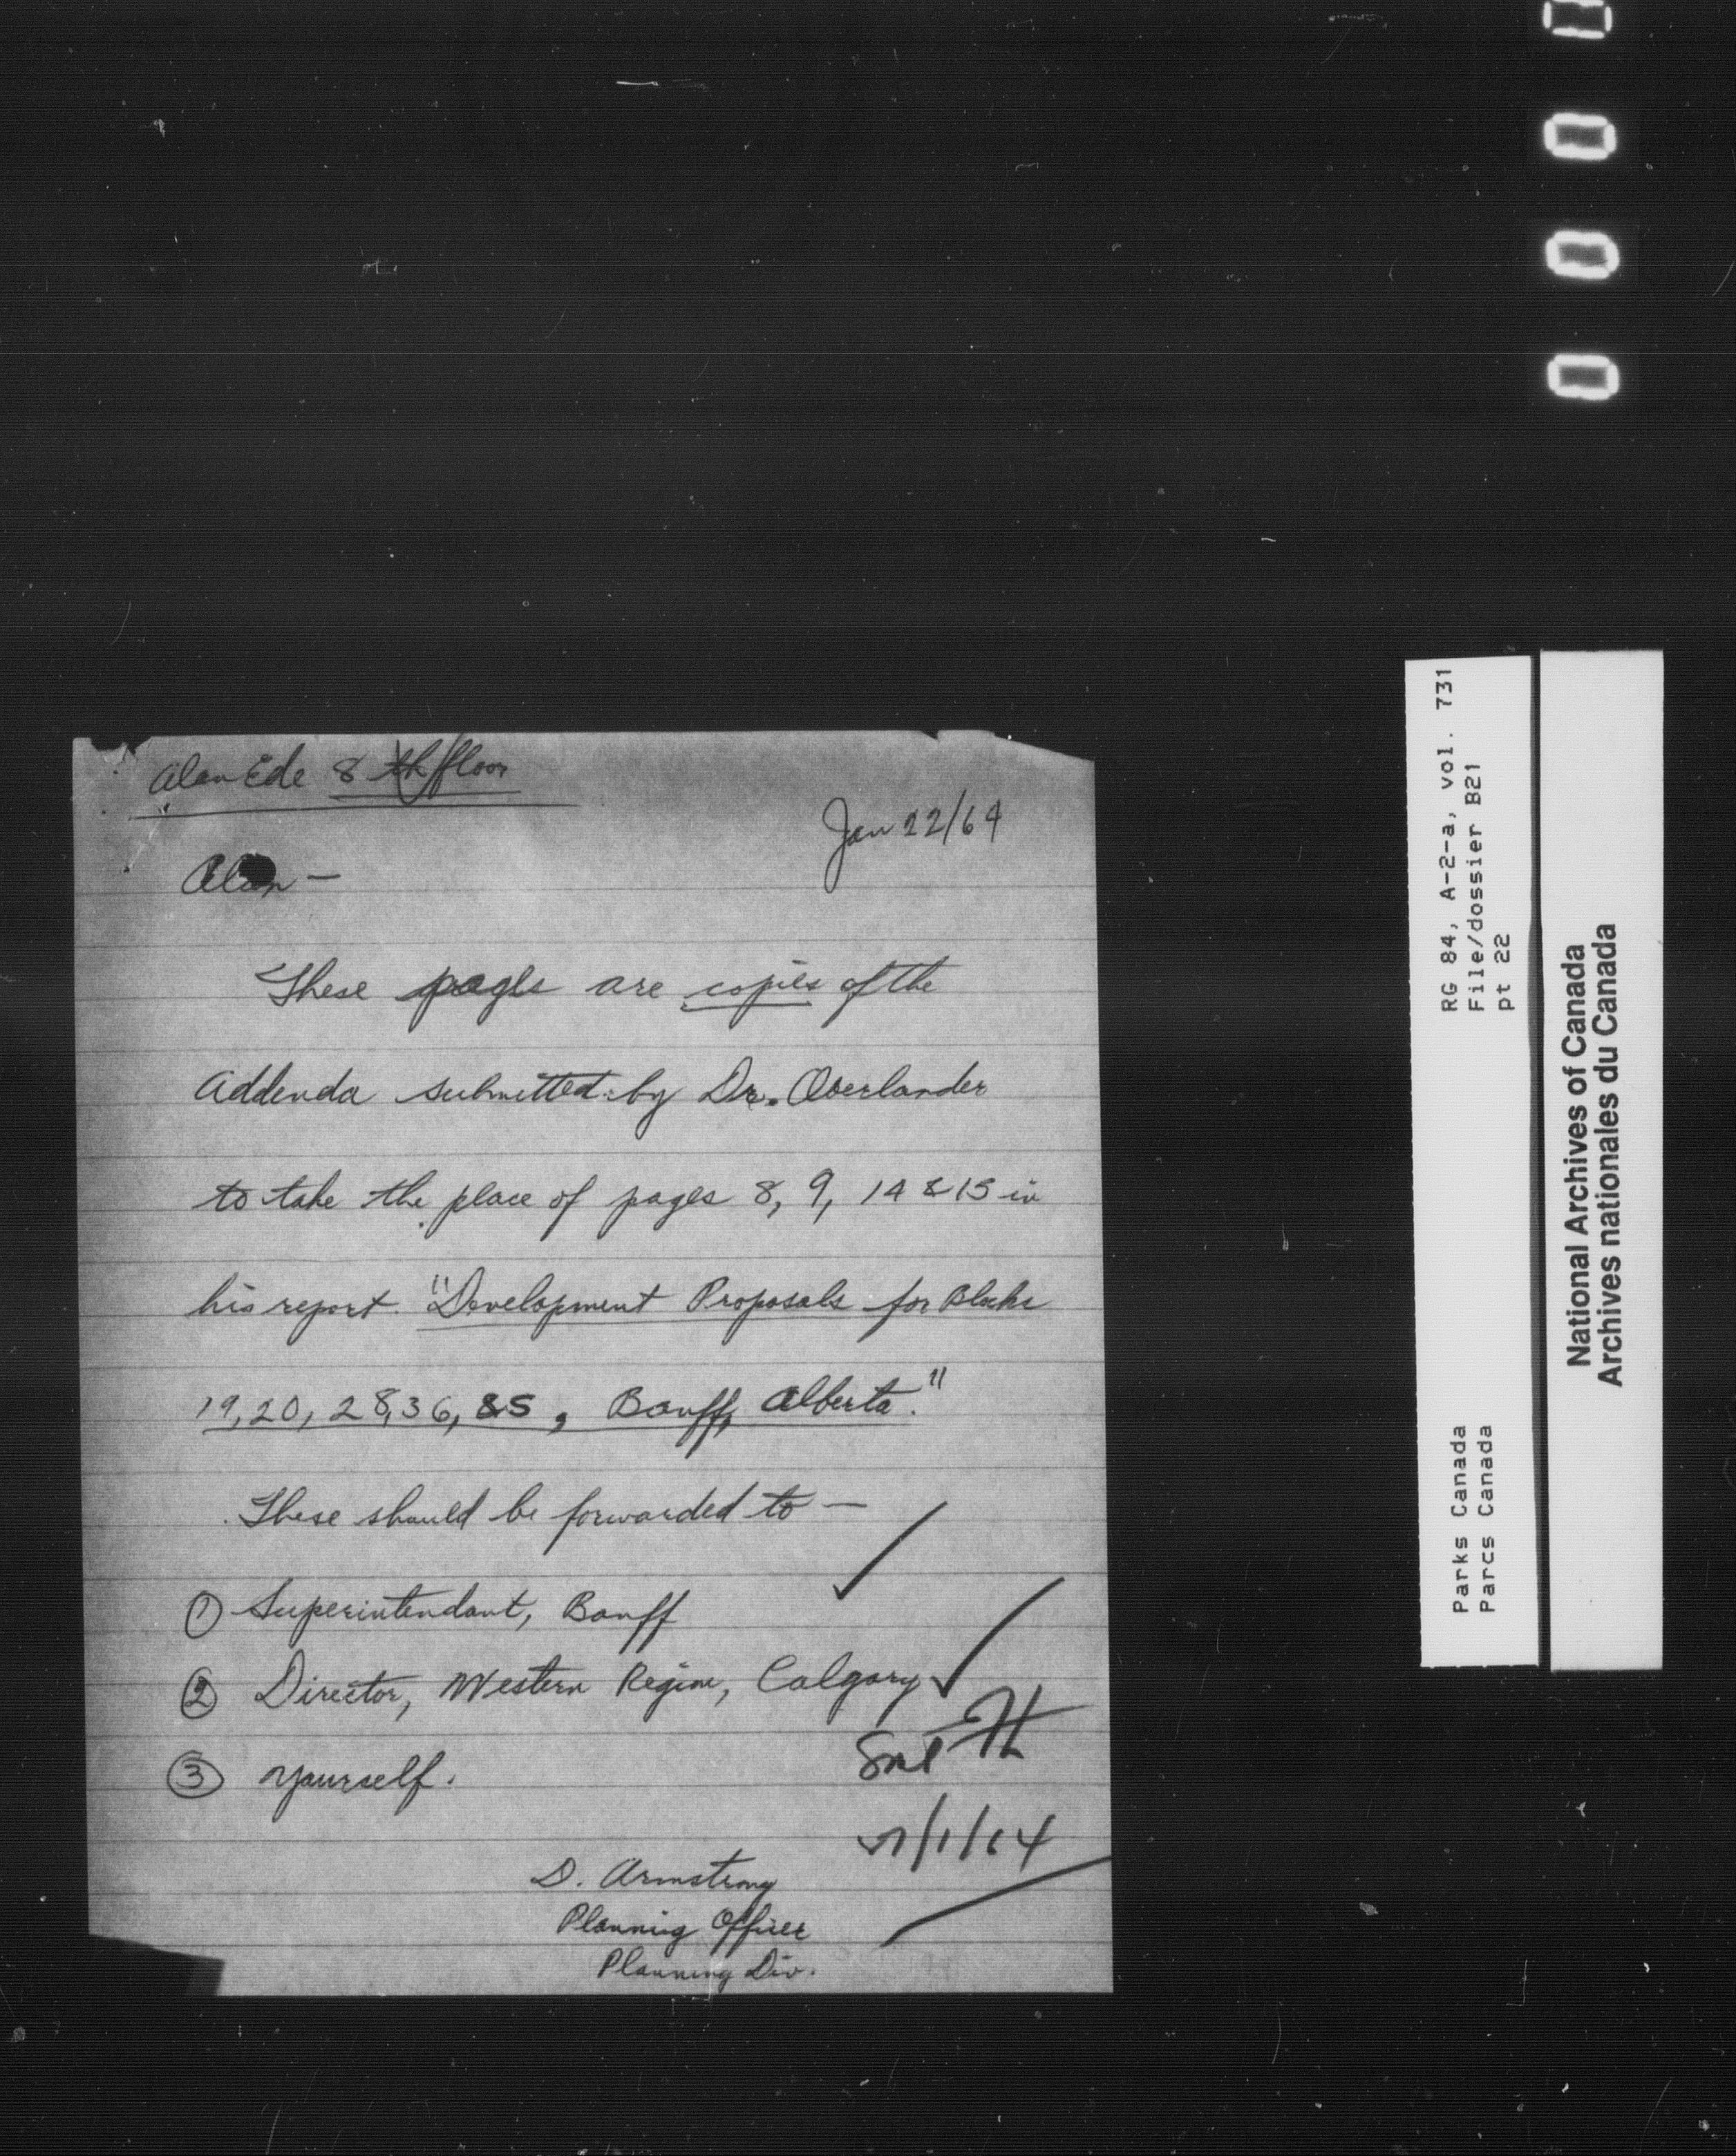 Alan Ede 8th floor
Jan 22/64
Alan —
These pages are copies of the
Addenda submitted by Dr. Oberlander
to take the place of pages 8, 9, 14 & 15 in
his report. "Development Proposals for Blocks
19, 20, 28, 36, &5, Banff, Alberta."
These should be forwarded to —
① Superintendant, Banff
② Director, Western Region, Calgary
③ Yourself.
/1/64
D. Armstrong
Planning Officer
Planning Div.
RG 84, A-2-a, vol. 731
File/dossier B21
pt 22
Parks Canada
Parcs Canada
National Archives of Canada
Archives nationales du Canada
0 0 0 0